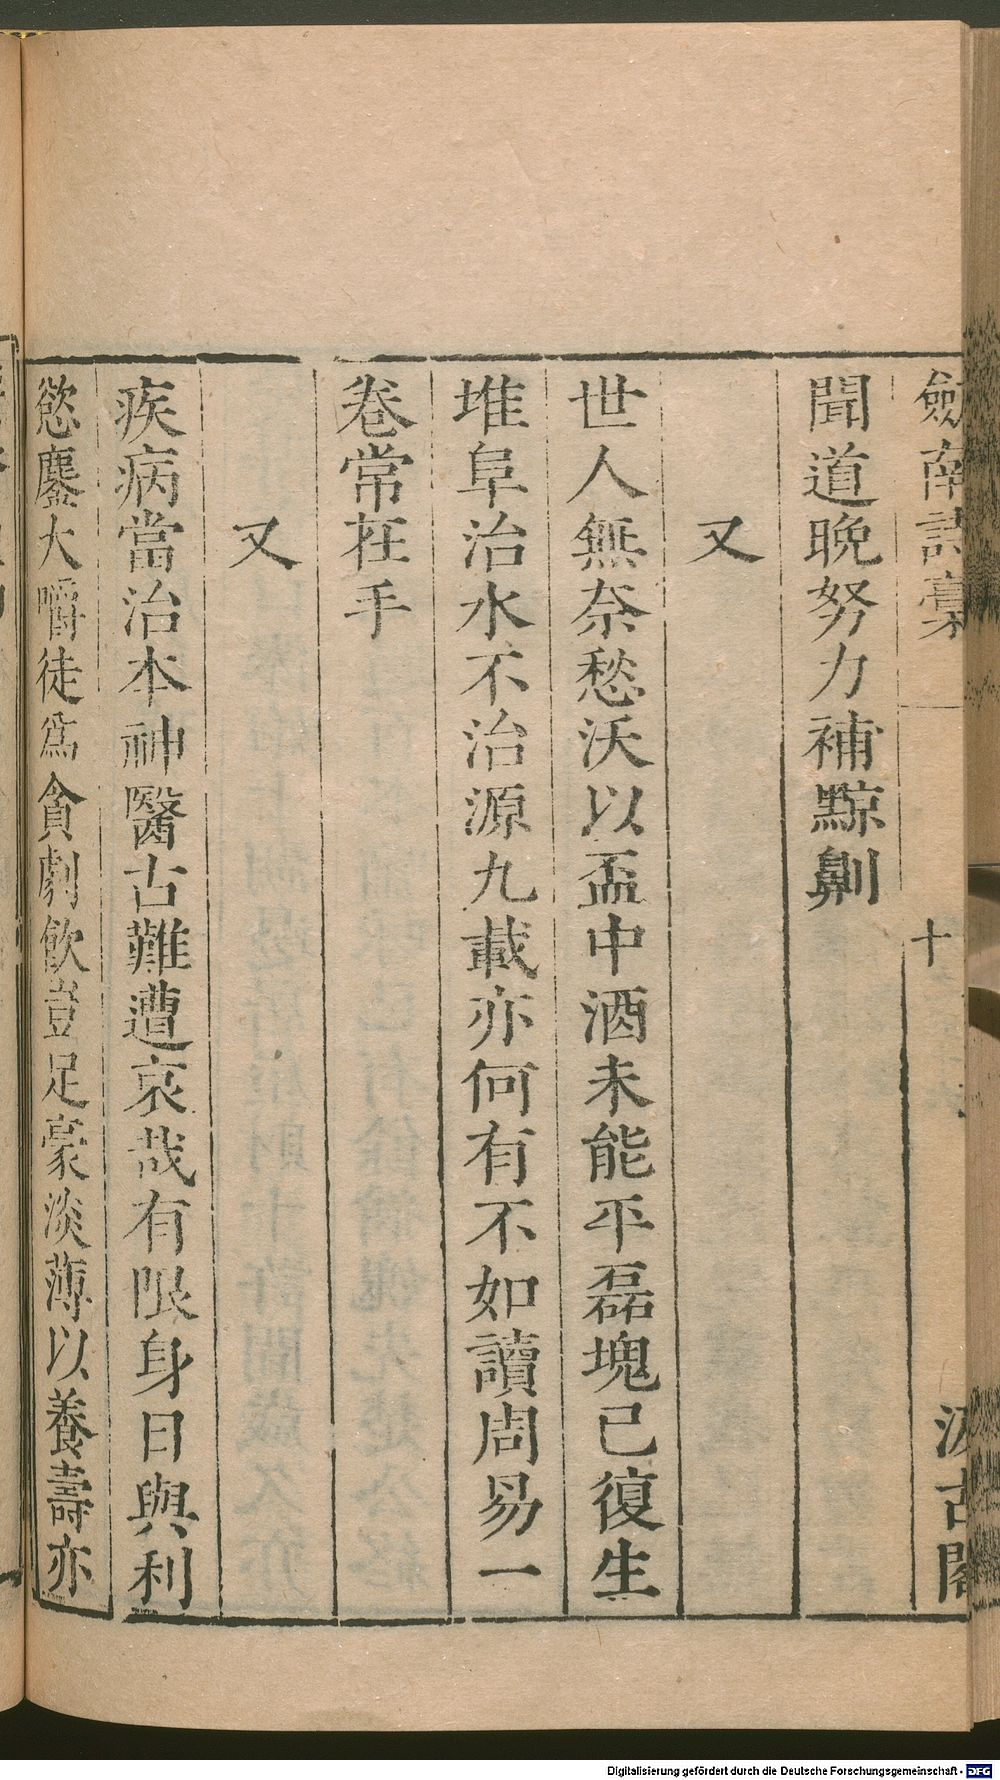 劍南詩稾 十 汲古閣
聞道晚努力補黥劓
又
世人無奈愁沃以盃中酒未能平磊塊已復生
堆阜治水不治源九載亦何有不如讀周易一
卷常在手
又
疾病當治本神醫古難遭哀哉有限身日與利
慾鏖大嚼徒爲貪劇飲豈足豪淡薄以養壽亦
Digitalisierung gefördert durch die Deutsche Forschungsgemeinschaft - DFG